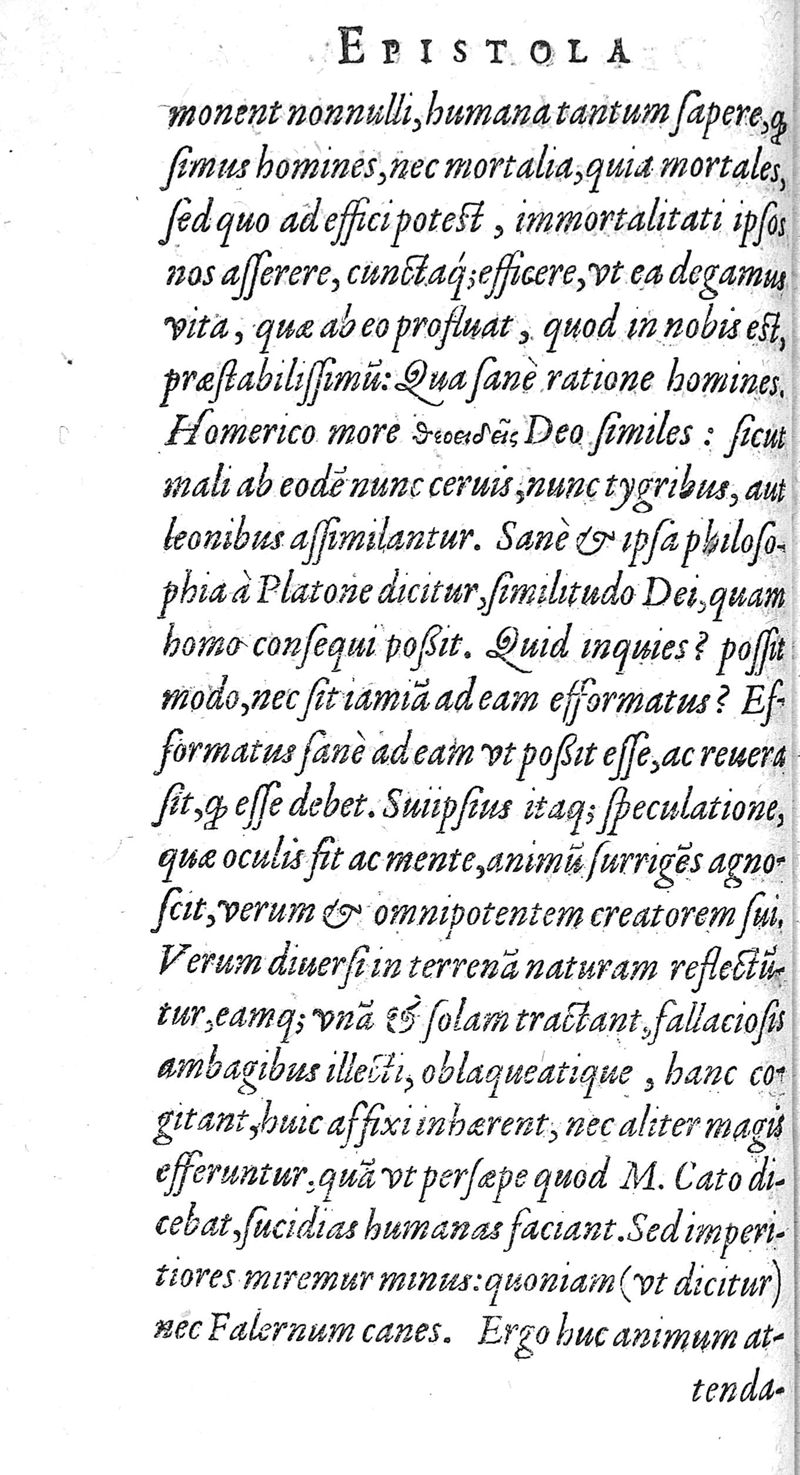 EPISTOLA
monent nonnulli, humana tantum ſapere, ꝙ
ſimus homines, nec mortalia, quia mortales,
ſed quo ad effici poteſt, immortalitati ipſos
nos aſſerere, cunctaq́; efficere, vt ea degamus
vita, quæ ab eo profluat, quod in nobis eſt,
præſtabiliſſimũ: Qua ſanè ratione homines.
Homerico more θεοειδεῖς Deo ſimiles: ſicut
mali ab eodẽ nunc ceruis, nunc tygribus, aut
leonibus aſſimilantur. Sanè & ipſa philoſo-
phia à Platone dicitur, ſimilitudo Dei, quam
homo conſequi poßit. Quid inquies? poſſit
modo, nec ſit iamiã ad eam efformatus? Ef-
formatus ſanè ad eam vt poßit eſſe, ac reuera
ſit, ꝙ eſſe debet. Suiipſius itaq; ſpeculatione,
quæ oculis fit ac mente, animũ ſurrigẽs agno-
ſcit, verum & omnipotentem creatorem ſui.
Verum diuerſi in terrenã naturam reflectũ-
tur, eamq; vnã & ſolam tractant, fallacioſis
ambagibus illecti, oblaqueatique, hanc co-
gitant, huic affixi inhærent, nec aliter magis
efferuntur, quã vt perſæpe quod M. Cato di-
cebat, ſucidias humanas faciant. Sed imperi-
tiores miremur minus: quoniam (vt dicitur)
nec Falernum canes. Ergo huc animum at-
tenda-